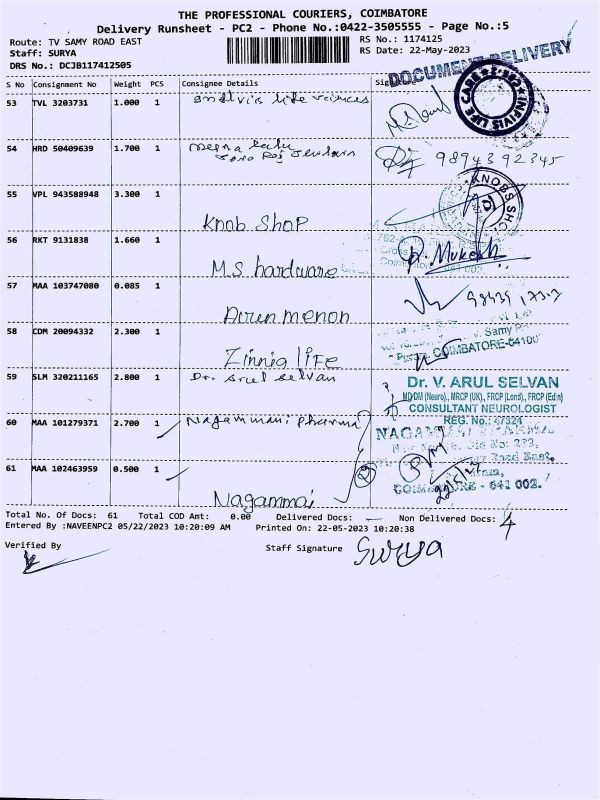 THE PROFESSIONAL COURIERS, COIMBATORE
Delivery Runsheet - PC2 - Phone No.:0422-3505555 - Page No.:5
Route: TV SAMY ROAD EAST RS No.: 1174125
Staff: SURYA RS Date: 22-May-2023
DRS No.: DCJB117412505
DOCUMENT DELIVERY
S No Consignment No Weight PCS Consignee Details
53 TVL 3203731 1.000 1
INFIVIS LIFE CARE
54 HRD 50409639 1.700 1
9894392345
55 VPL 943588948 3.300 1 Knob Shop
KNOBS SHOP
56 RKT 9131838 1.660 1 M.S hardware
R. Mukesh
57 MAA 103747080 0.085 1 Arun menon
58 CDM 20094332 2.300 1 Zinnia liFE
COIMBATORE-64100
59 SLM 320211165 2.800 1 Dr. Arul Selvan
Dr. V. ARUL SELVAN
MD DM (Neuro)., MRCP (UK)., FRCP (Lond)., FRCP (Edin)
CONSULTANT NEUROLOGIST
REG. No.: 47324
60 MAA 101279371 2.700 1 Nagammai pharma
61 MAA 102463959 0.500 1 Nagammai
- 641 002.
Total No. Of Docs: 61 Total COD Amt: 0.00 Delivered Docs: Non Delivered Docs: 4
Entered By :NAVEENPC2 05/22/2023 10:20:09 AM Printed On: 22-05-2023 10:20:38
Verified By Staff Signature Surya